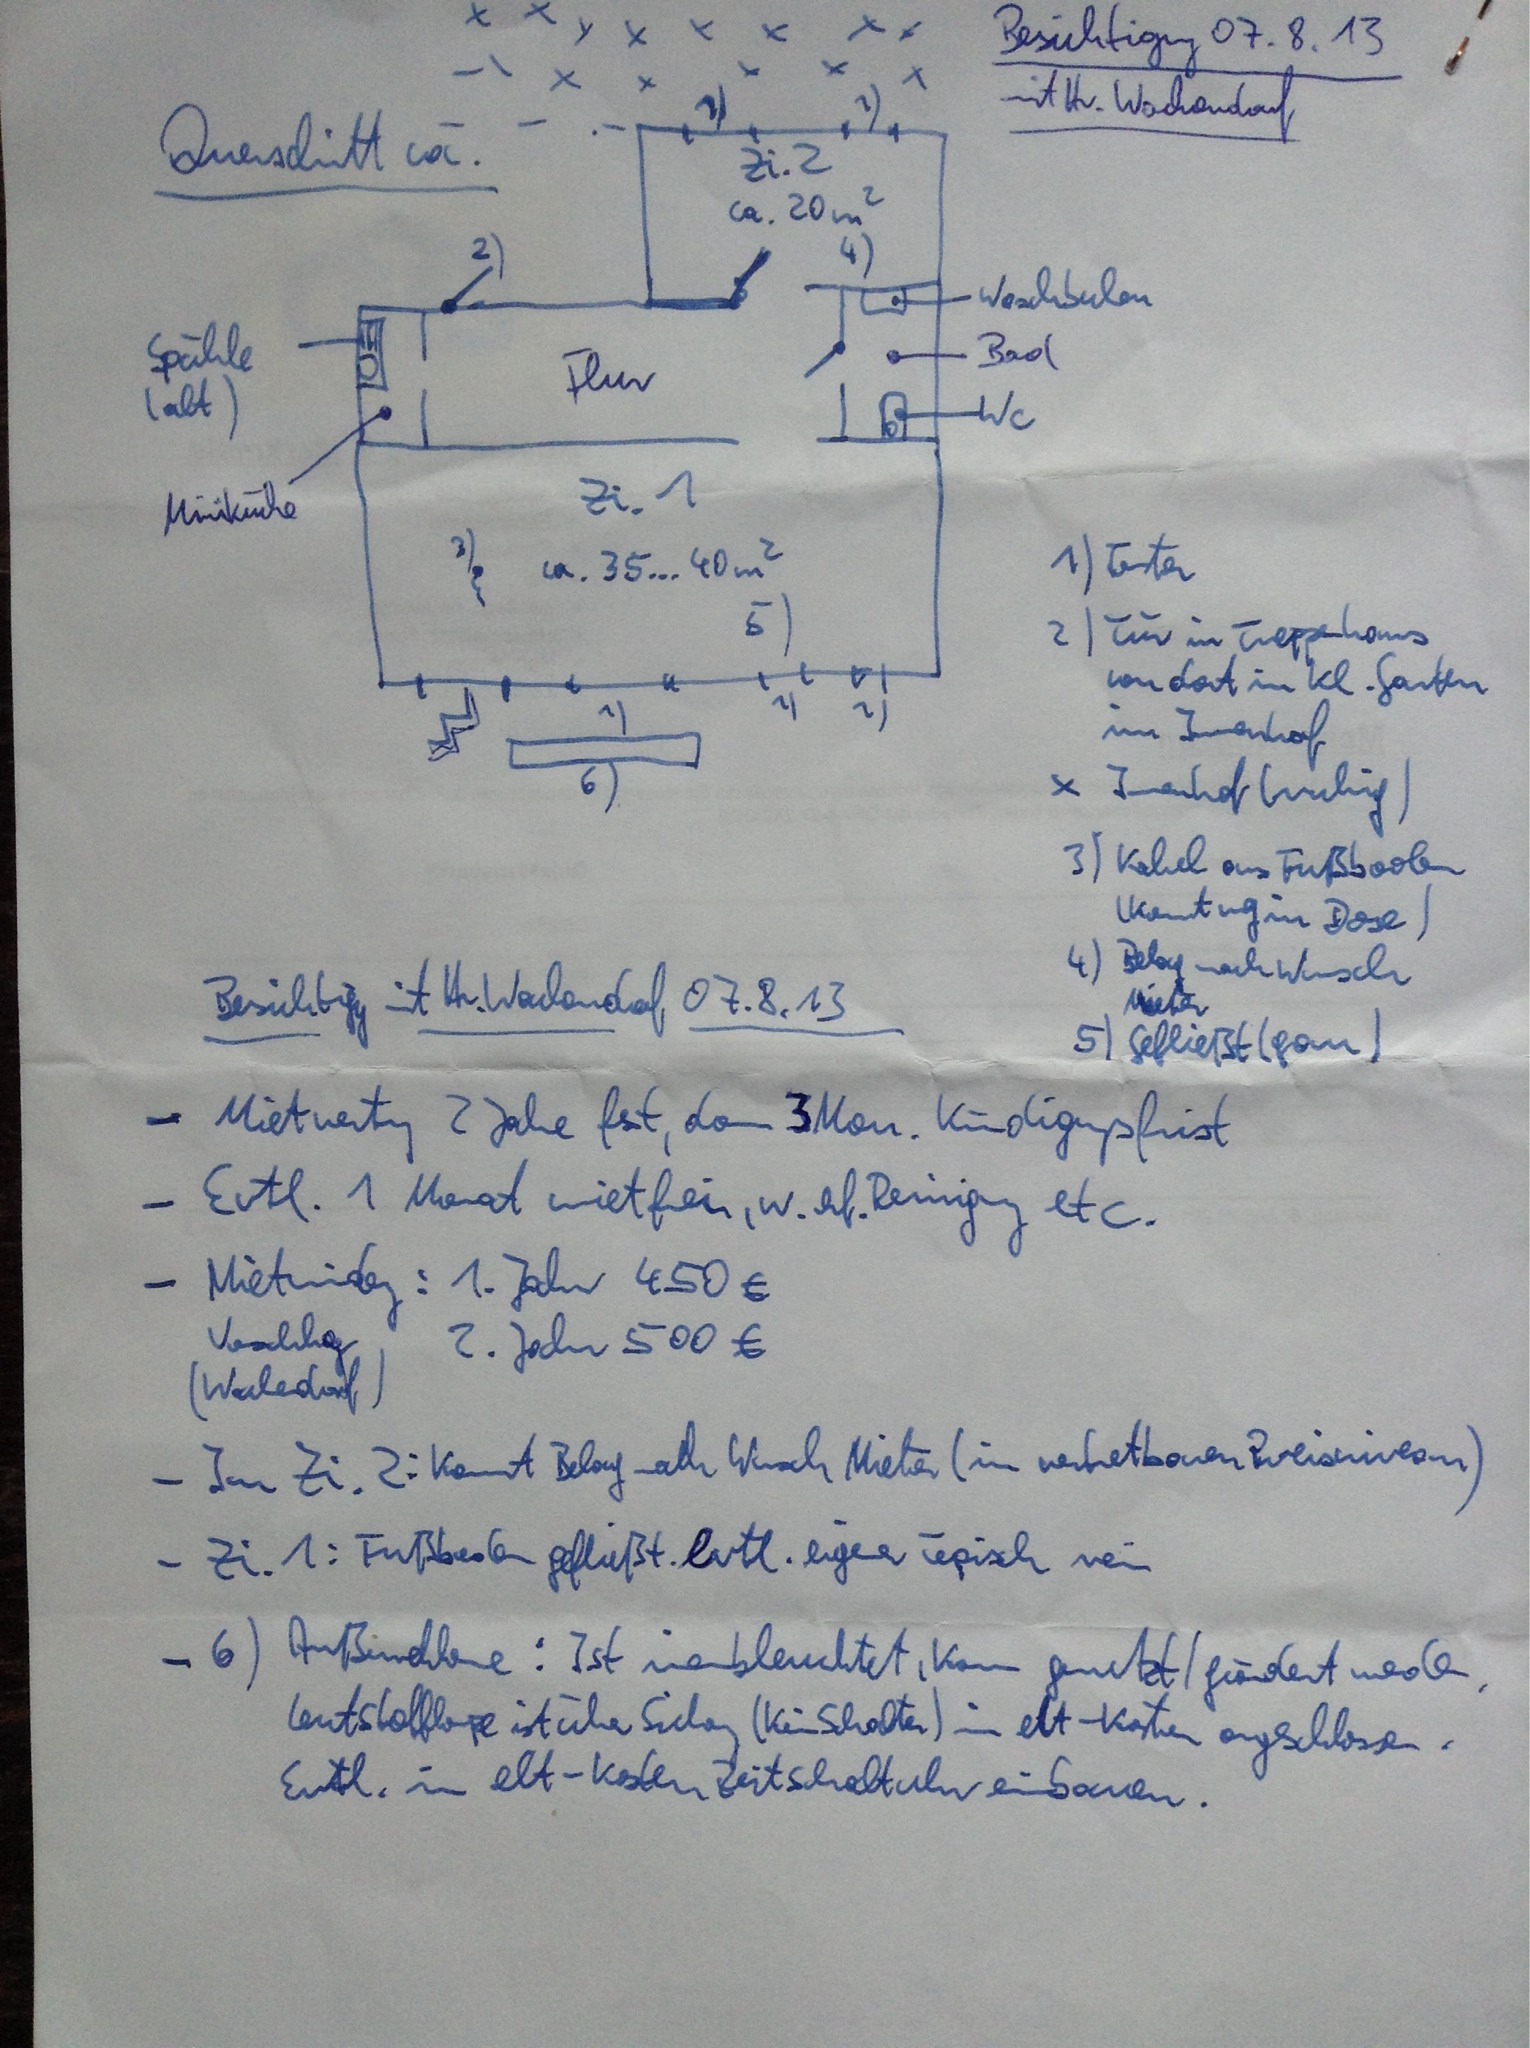 Besichtigung 07.8.13
mit Hr. Wachendorf
Querschnitt ca.
1) 1)
Zi. 2
ca. 20 m²
2)
4)
Waschbecken
Spühle
(alt)
Flur
Bad
WC
Miniküche
Zi. 1
3)
ca. 35...40 m²
5)
1) 1) 1)
6)
1) Fenster
2) Tür in Treppenhaus
von dort in kl. Garten
im Innenhof
x Innenhof (ruhig)
3) Kabel aus Fußboden
(kommt ng in Dose)
4) Belag nach Wunsch
Mieter
5) Gefließt (grau)
Besichtigung mit Hr. Wachendorf 07.8.13
- Mietvertrag 2 Jahre fest, dann 3 Mon. Kündigungsfrist
- Evtl. 1 Monat mietfrei, w. erf. Reinigung etc.
- Mietniedrg: 1. Jahr 450 €
Vorschlag 2. Jahr 500 €
(Wachendorf)
- Im Zi. 2: Kommt Belag nach Wunsch Mieter (im vertretbaren Preisniveau)
- Zi. 1: Fußboden gefließt. Evtl. eigener Teppisch rein
- 6) Außenreklame: Ist innenbleuchtet, kann genutzt/geändert werden,
Leutstofflampe ist über Sicherung (kein Schalter) in elt-Kasten angeschlossen.
Evtl. in elt-Kasten Zeitschaltuhr einbauen.